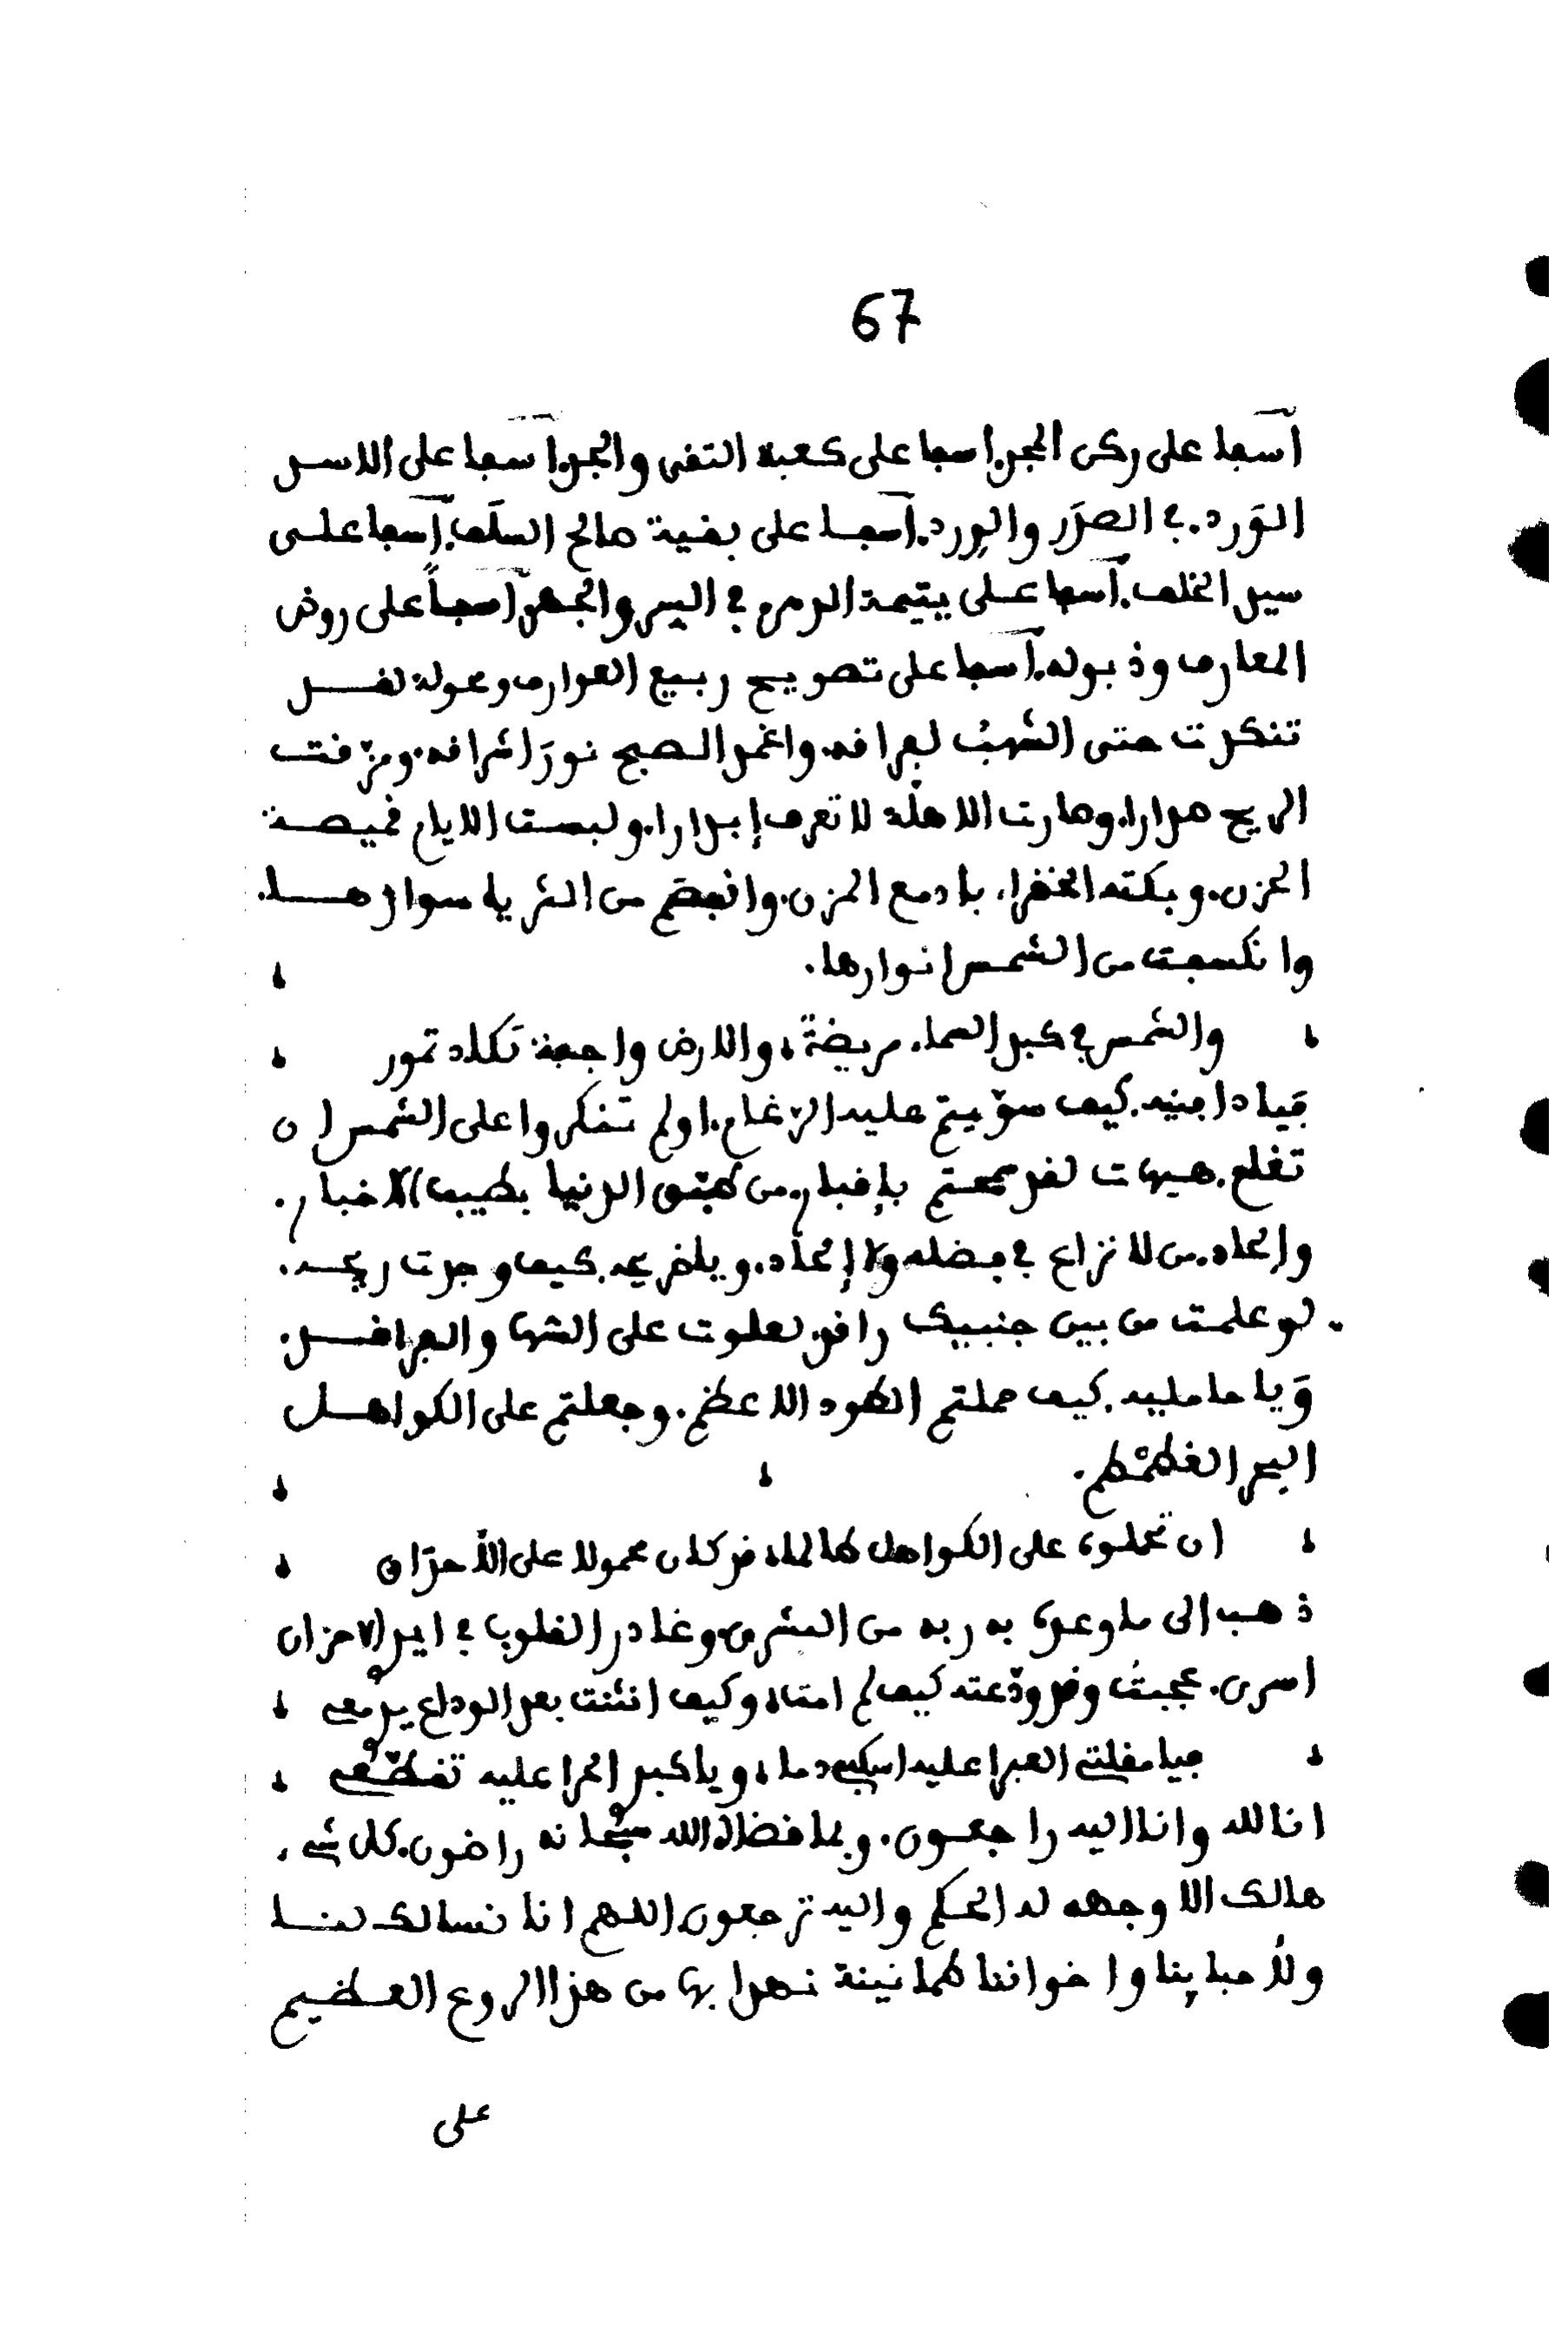 67
آسفا على ركن المجد. اسفا على كعبة التقى والمجد. اسفا على الاسد
الوَرد. في الصدَر والوِرد. آسفا على بقية صالح السلَف. آسفا على
سيد الخلف. آسفا على يتيمة الدهر. في السر والجهر. آسفاً على روض
المعارف وذبوله. آسفا على تصويح ربيع العوارف ومحوله. لقد
تنكرت حتى الشهبُ لفراقه. واغمد الصبح نورَ اشراقه. ومزّقت
الريح صدارا. وصارت الاهلّة لا تعرف إبدارا. ولبست الايام قميصة
الحزن. وبكته الخضراء بادمع المزن. وانفصم من الثريا سوارها.
وانكسفت من الشمس انوارها.
والشمس في كبد السماء مريضةٌ، والارض واجفة تَكاد تمور
فيا دافنيه. كيف سوّيتم عليه الرغام. اولم تفكروا على الشمس ان
تغام. هيهات لقد سمحتم بإقبار. من طبّق الدنيا بطيب الاخبار.
وإلحاد. من لا نزاع في فضله ولا إلحاد. ويا ضريحه. كيف وجدت ريحه.
لو علمت من بين جنبيك راقد. لعلوت على السُها والفراقد.
وَيا حامليه. كيف حملتم الطود الاعظم. وجعلتم على الكواهل
البحر الغطمْطم.
ان تحملوه على الكواهل طالما، قد كان محمولا على الأحداق
ذهب الى ما وعده به ربه من البشرى، وغادر القلوب في ايد الاحزان
اسرى. عجبتُ وقد ودّعته كيف لم امت، وكيف انثنت بعد الوداع يدٌ معي
فيا مقلتي العبرا عليه اسكبي دما، ويا كبد الحرا عليه تقطّعي
انا لله وانا اليه راجعون. وبما قضاه الله سبْحانه راضون. كل شيء
هالك الا وجهه له الحكم واليه ترجعون. اللهم انا نسالك لنا
ولأحبابِنا واخواننا طمانينة نهدا بها من هذا الروع العظيم
على